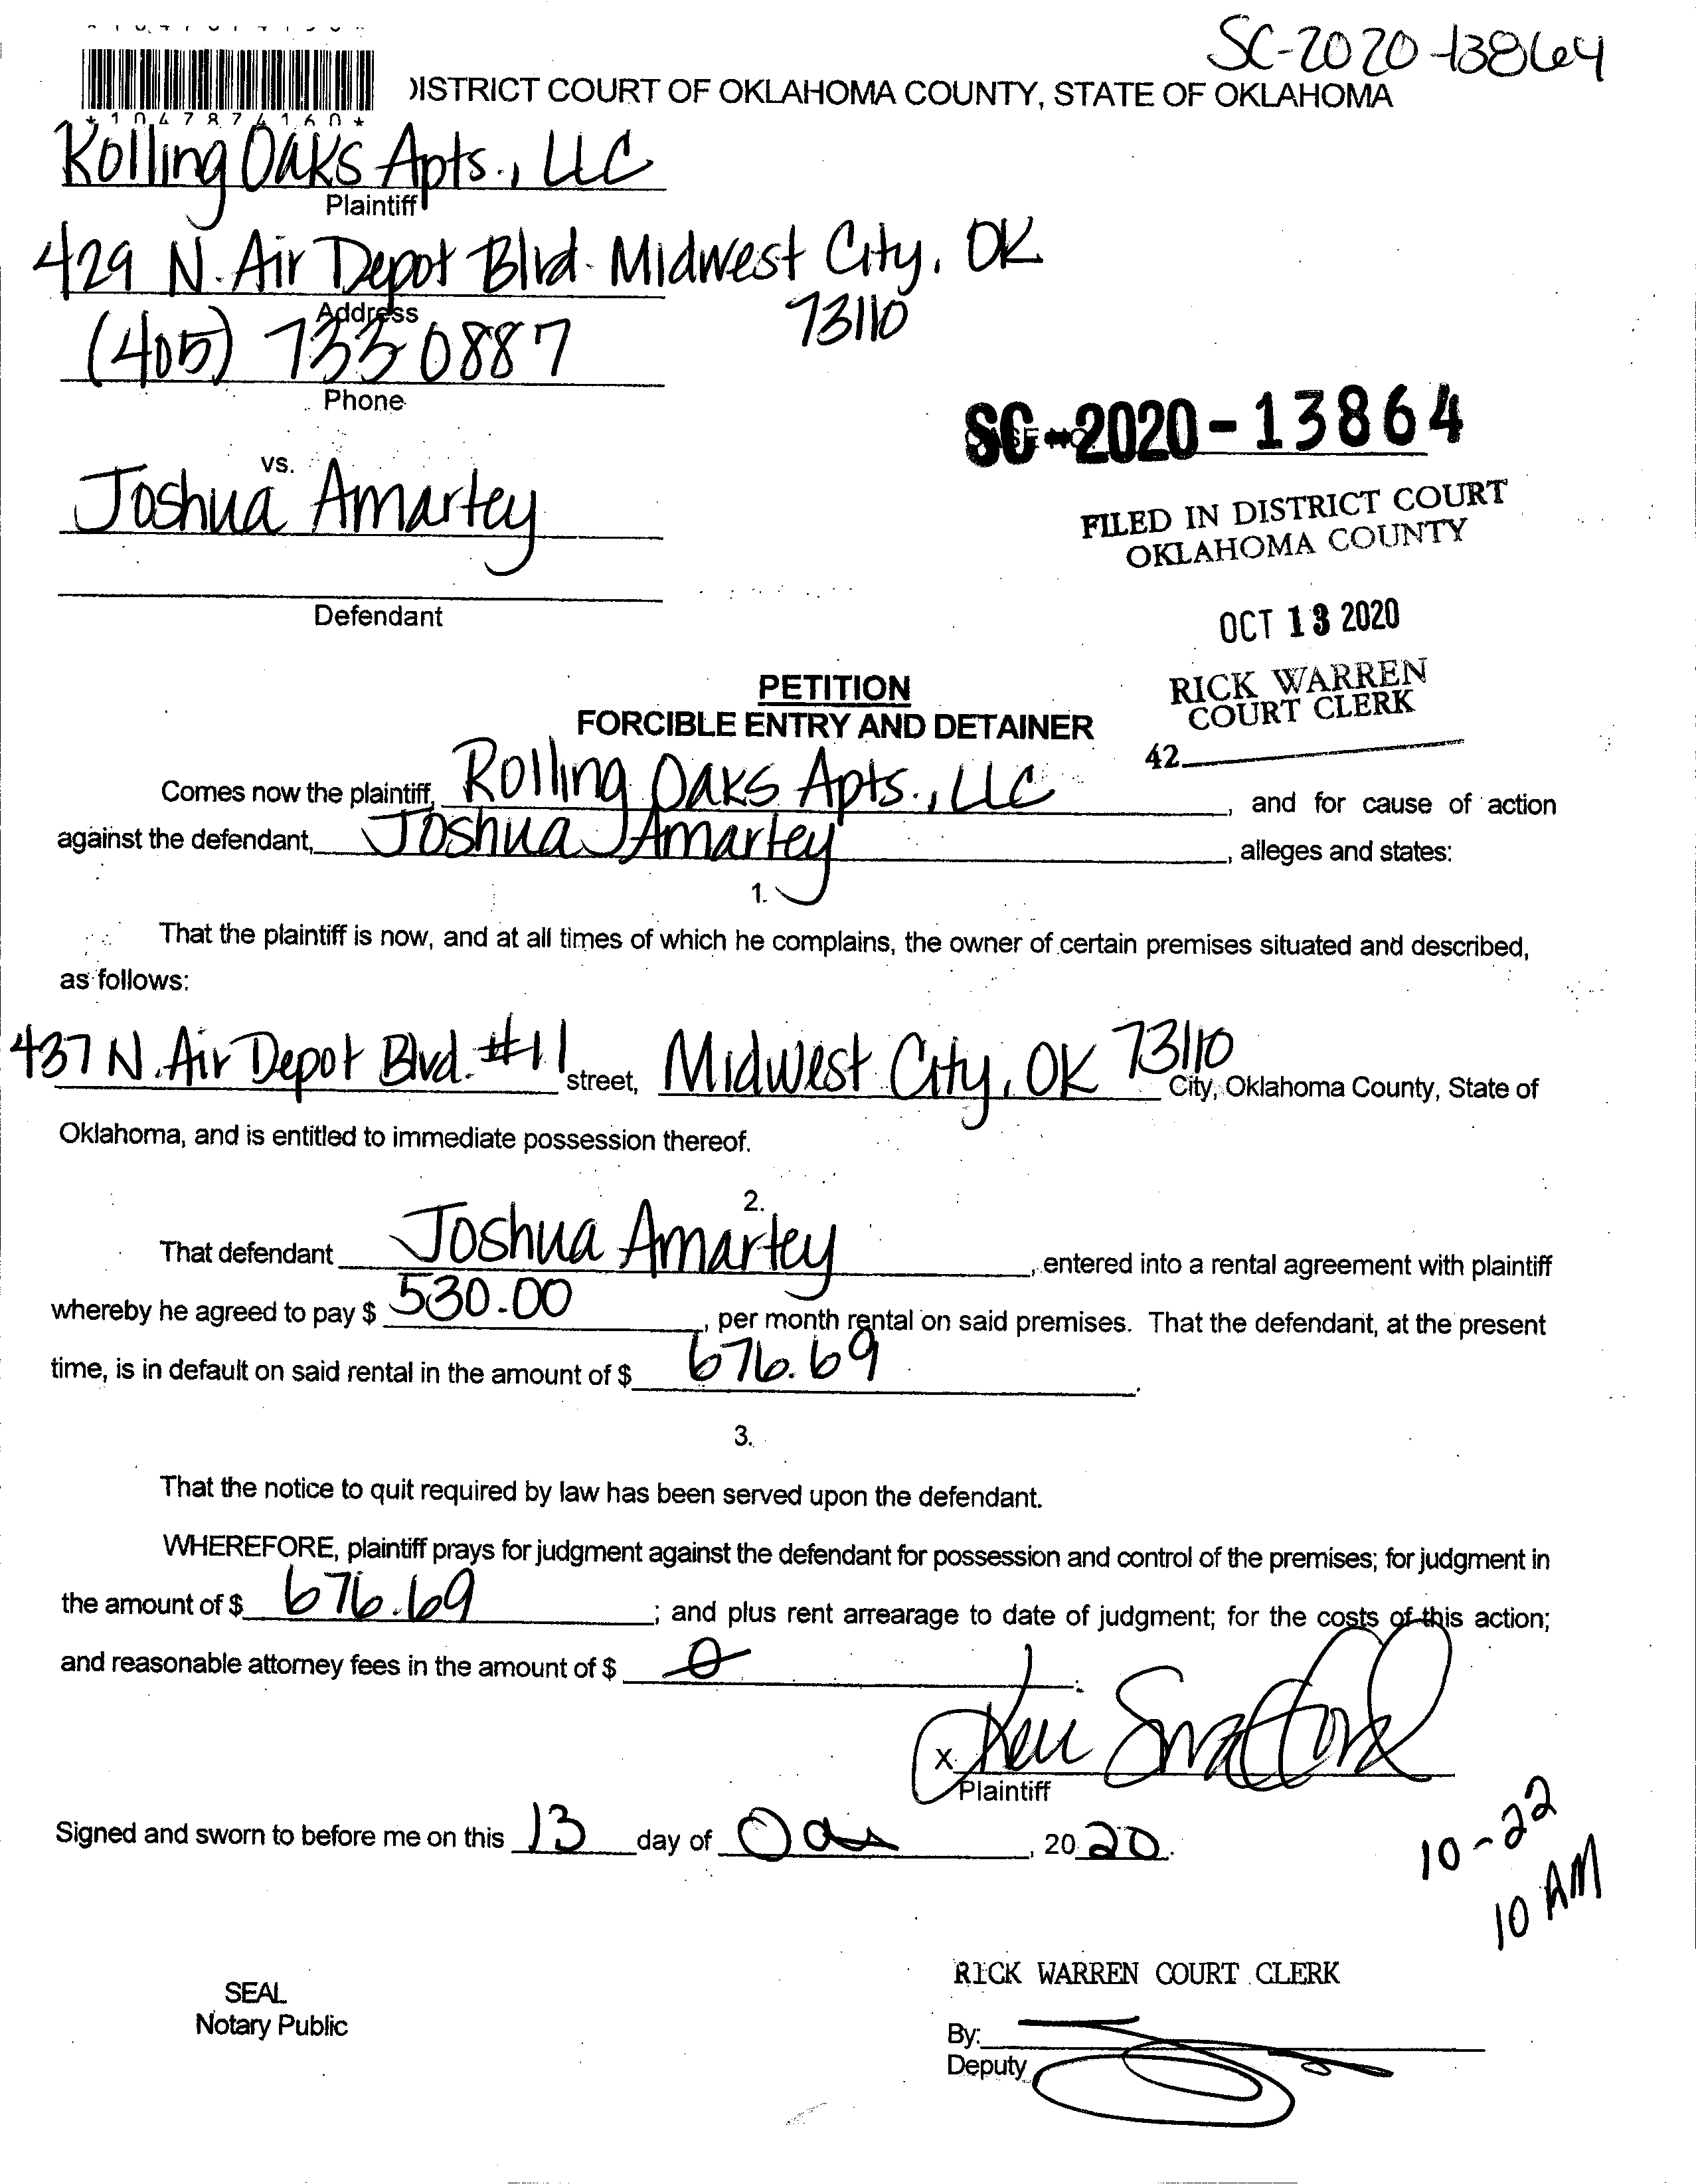 SC-2020-13864
DISTRICT COURT OF OKLAHOMA COUNTY, STATE OF OKLAHOMA
*1047874160*
Rolling Oaks Apts., LLC
Plaintiff
429 N. Air Depot Blvd. Midwest City, OK
73110
Address
(405) 733 0887
Phone
SC-2020-13864
vs.
Joshua Amartey
FILED IN DISTRICT COURT
OKLAHOMA COUNTY
Defendant
OCT 13 2020
RICK WARREN
COURT CLERK
42
PETITION
FORCIBLE ENTRY AND DETAINER
Comes now the plaintiff, Rolling Oaks Apts., LLC, and for cause of action
against the defendant, Joshua Amartey, alleges and states:
1.
That the plaintiff is now, and at all times of which he complains, the owner of certain premises situated and described,
as follows:
437 N. Air Depot Blvd. #11 street, Midwest City, OK 73110 City, Oklahoma County, State of
Oklahoma, and is entitled to immediate possession thereof.
2.
That defendant Joshua Amartey, entered into a rental agreement with plaintiff
whereby he agreed to pay $ 530.00, per month rental on said premises. That the defendant, at the present
time, is in default on said rental in the amount of $ 676.69.
3.
That the notice to quit required by law has been served upon the defendant.
WHEREFORE, plaintiff prays for judgment against the defendant for possession and control of the premises; for judgment in
the amount of $ 676.69; and plus rent arrearage to date of judgment; for the costs of this action;
and reasonable attorney fees in the amount of $ 0.
X
Plaintiff
Signed and sworn to before me on this 13 day of , 20 20.
10-22
10 AM
RICK WARREN COURT CLERK
SEAL
Notary Public
By:
Deputy